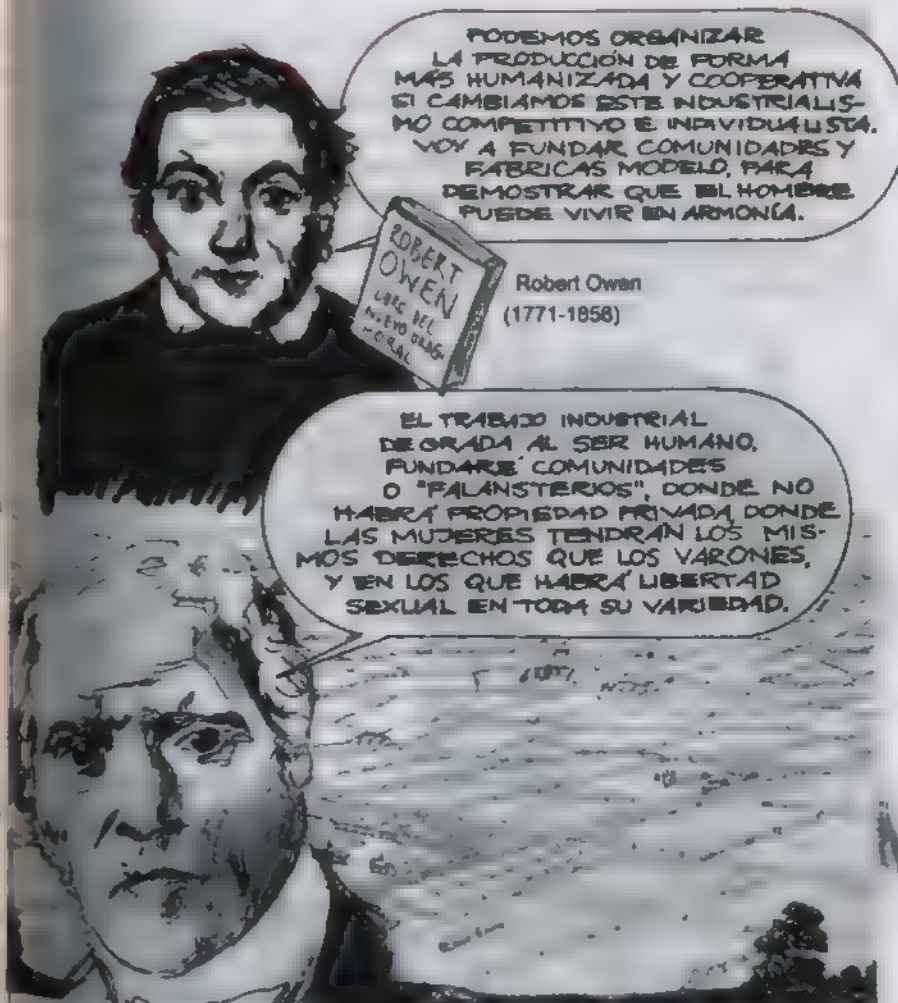 PODEMOS ORGANIZAR
LA PRODUCCIÓN DE FORMA
MÁS HUMANIZADA Y COOPERATIVA
SI CAMBIAMOS ESTE INDUSTRIALIS-
MO COMPETITIVO E INDIVIDUALISTA.
VOY A FUNDAR COMUNIDADES Y
FÁBRICAS MODELO, PARA
DEMOSTRAR QUE EL HOMBRE
PUEDE VIVIR EN ARMONÍA.
ROBERT
OWEN
LIBRO DEL
NUEVO
MORAL
Robert Owen
(1771-1858)
EL TRABAJO INDUSTRIAL
DEGRADA AL SER HUMANO.
FUNDARÉ COMUNIDADES
O "FALANSTERIOS", DONDE NO
HABRÁ PROPIEDAD PRIVADA, DONDE
LAS MUJERES TENDRÁN LOS MIS-
MOS DERECHOS QUE LOS VARONES,
Y EN LOS QUE HABRÁ LIBERTAD
SEXUAL EN TODA SU VARIEDAD.